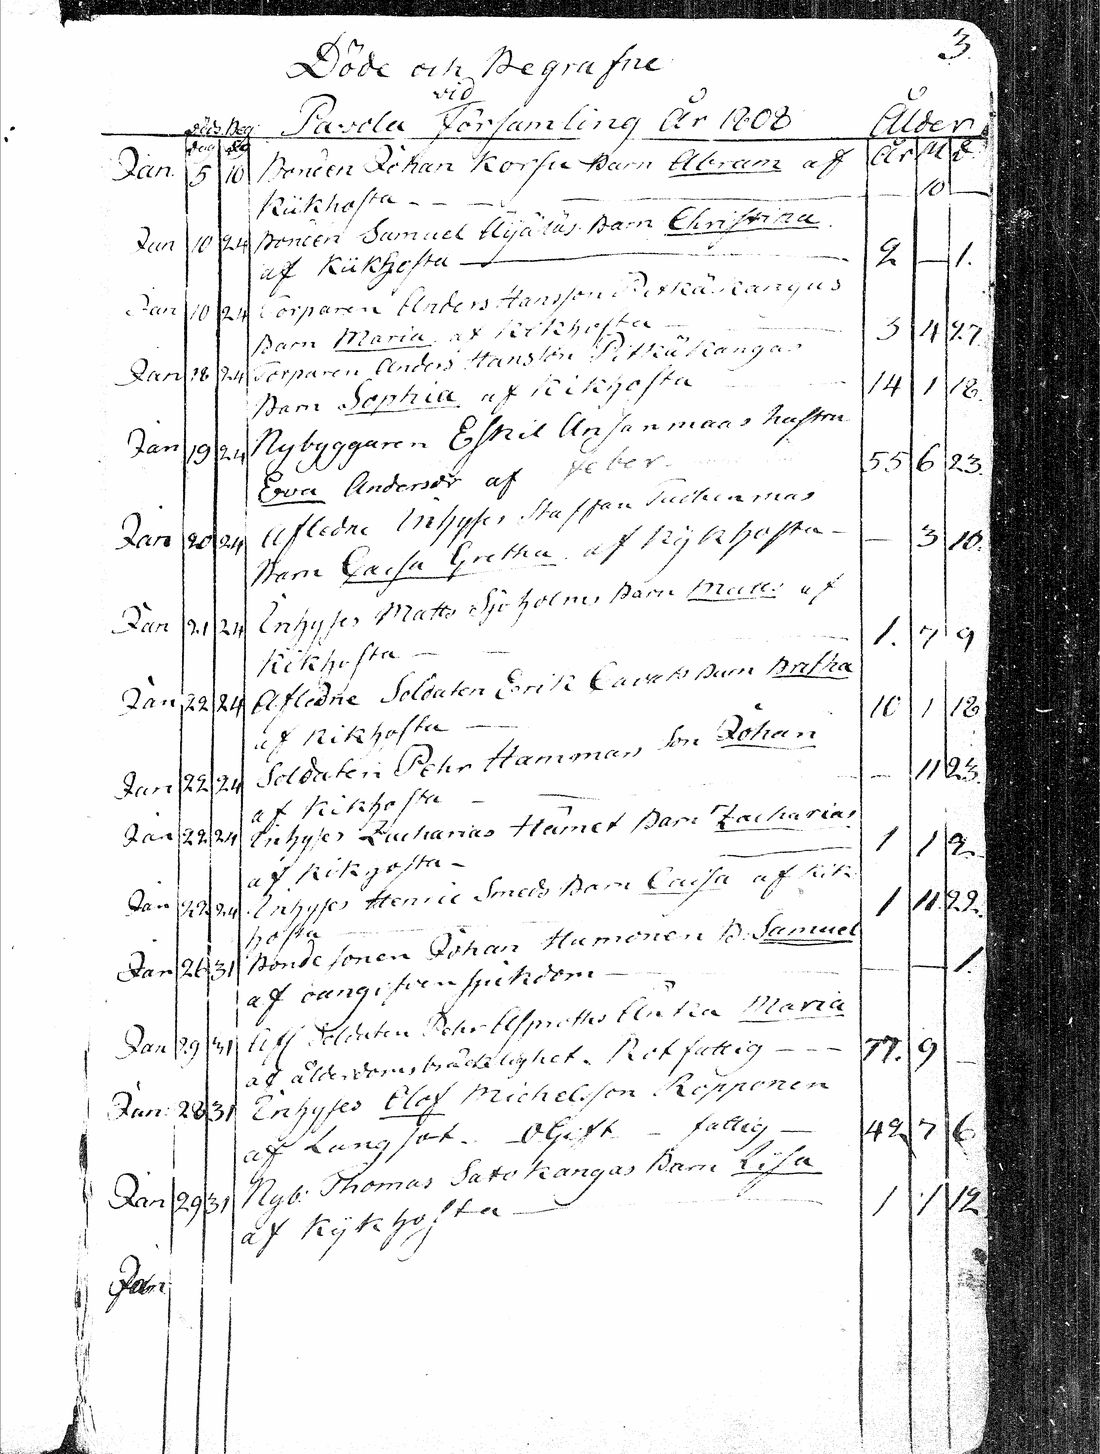 3.
Döde och Begrafne
vid
Pavola Församling År 1808
Ålder
döds Beg
dag dag
År M D
Jan 5 10 Bonden Johan Korsu Barn Abram af
Kikhosta - - 10 -
Jan 10 24 Bonden Samuel Barn Christina
af Kikhosta 2 - 1.
Jan 10 24 Torparen Anders Hansson Pitkäkangas
Barn Maria af Kikhosta 3 4 27
Jan 18 24 Torparen Anders Hansson Pitkäkangas
Barn Sophia af Kikhosta 14 1 18.
Jan 19 24 Nybyggaren Eskil Ansanmaas hustru
Eva Andersdr af feber. 55 6 23
Jan 20 24 Afledne Inhyses Staffan
Barn Caisa Gretha af Kijkhosta - - 3 18.
Jan 21 24 Inhyses Matts Sjöholms Barn Matts af
Kikhosta - 1. 7 9
Jan 22 24 Afledne Soldaten Erik Barn Britha
af Kikhosta 10 1 18
Jan 22 24 Soldaten Pehr Hammars Son Johan
af Kikhosta - 11 23.
Jan 22 24 Inhyses Zacharias Barn Zacharias
af Kikhosta - 1 1 2.
Jan 22 24 Inhyses Henric Smeds Barn Caisa af Kik
hosta 1 11. 22.
Jan 26 31 Bondesonen Johan Hamonen B. Samuel
af oangifven sjukdom - - 1.
Jan 29 31 Afl Soldaten Pehr Enka Maria
af ålderdomsbräcklighet. Rotfattig - - - 77. 9 -
Jan: 28 31 Inhyses Olof Michelsson Ropponen
af Lungsot. OGift - fattig - 42 7 6
Jan 29 31 Nyb: Thomas Satokangas Barn Lisa
af Kijkhosta 1 1 12
Jan